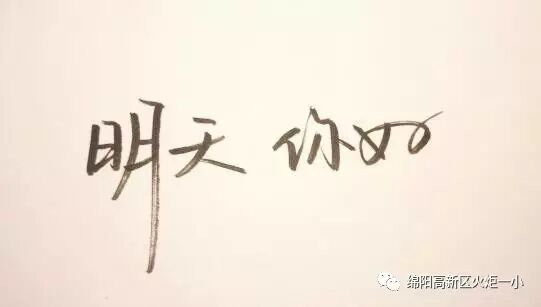 明天 你好
绵阳高新区火炬一小